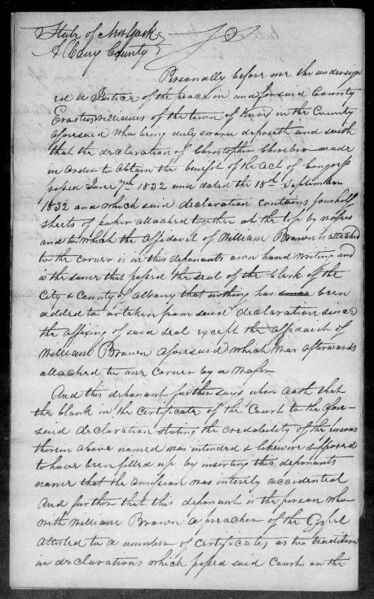 State of New York }
Albany County } SS
Personally before me the undersign
ed a Justice of the peace in and for said County
Erastus Williams of the town of Knox in the County
aforesaid who being duly sworn deposeth and saith
that the declaration of Christopher made
in order to obtain the benefit of the act of Congress
passed June 7th 1832 and dated the 18th September
1832 and which said declaration contains four half
sheets of paper attached together at the top by wafers
and to which the affidavit of William Brown is attached
to the corner is in this deponants own hand writing and
is the same that passed the seal of the Clerk of the
City & County of Albany that nothing has been
added to or taken from said declaration since
the affixing of said seal except the affidavit of
William Brown aforesaid which was afterwards
attached to one corner by a wafer
And this deponant further says upon oath that
the blank in the certificate of the Court to the afore
said declaration stating the credability of the
therein above named was intended & likewise supposed
to have been filled up by inserting this deponants
name that the omission was entirely accidental
And further that this deponant is the person who
with William Brown a preacher of the Gospel
attested to a number of certificates as to tradition
in declarations which passed said Court in the